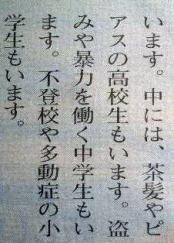 います。中には、茶髪やピ
アスの高校生もいます。盗
みや暴力を働く中学生もい
ます。不登校や多動症の小
学生もいます。